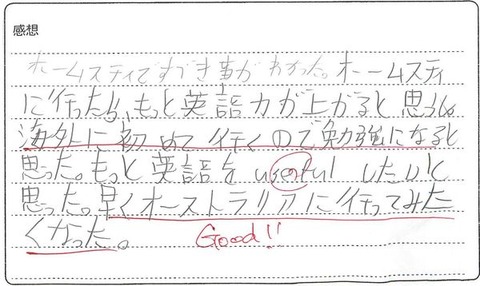 感想
ホームスティですべき事がわかった。ホームスティ
に行ったら、もっと英語力が上がると思うし、
海外に初めて行くので勉強になると
思った。もっと英語を useful したいと
思った。早くオーストラリアに行ってみた
くなった。 Good!!